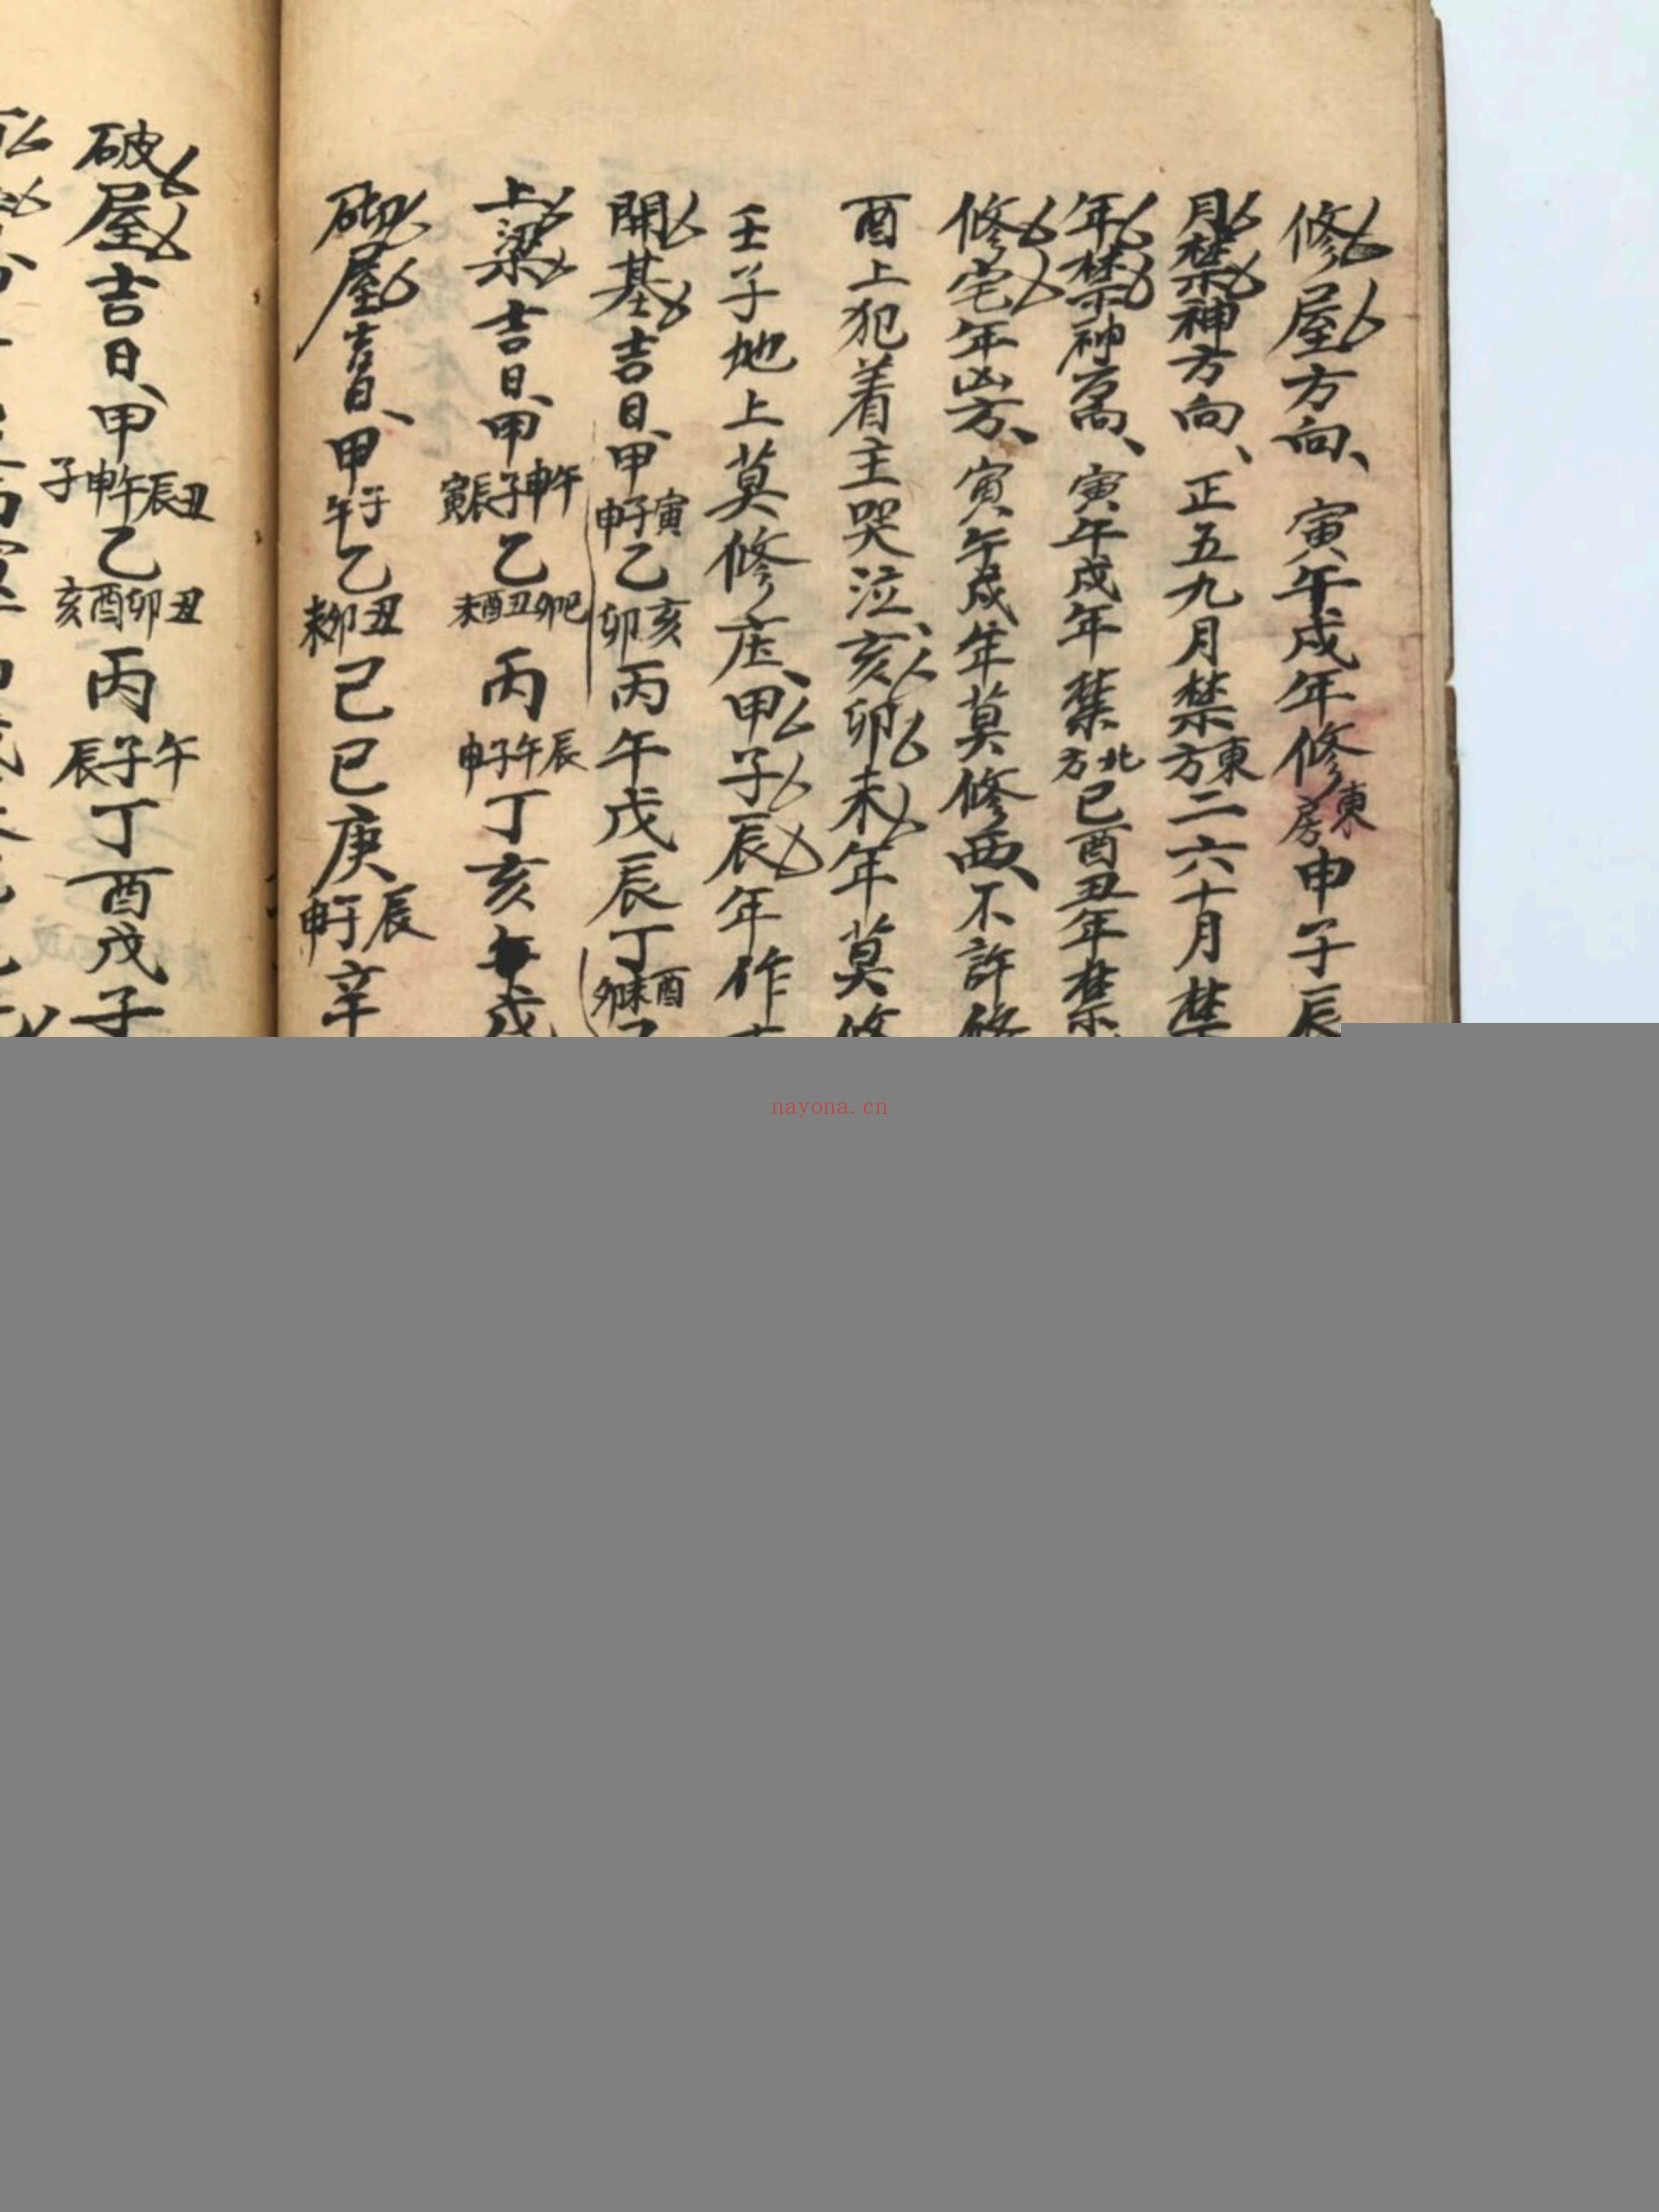 修屋方向、寅午戌年修東房申子辰
月禁神方向、正五九月禁東方二六十月禁
年禁神方、寅午戌年禁北方巳酉丑年禁
修宅年凶方、寅午戌年莫修西、不許修
酉上犯着主哭泣、亥卯未年莫修
壬子地上莫修庄、甲子辰年作
開基吉日、甲寅子申乙亥卯丙午戊辰丁酉未卯
上梁吉日、甲午申子辰寅乙巳卯丑酉未丙辰午子申丁亥戊
砌屋吉日、甲子午乙丑卯未己巳庚辰午申辛
破屋吉日、甲丑辰午申子乙丑卯酉亥丙午子辰丁酉戊子
nayona.cn